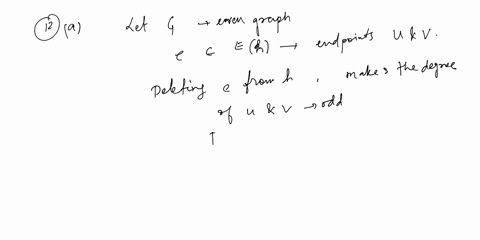 12 (a) Let G → even graph
e ⊂ E(G) → endpoints U & V.
Deleting e from G, makes the degree
of u & v → odd